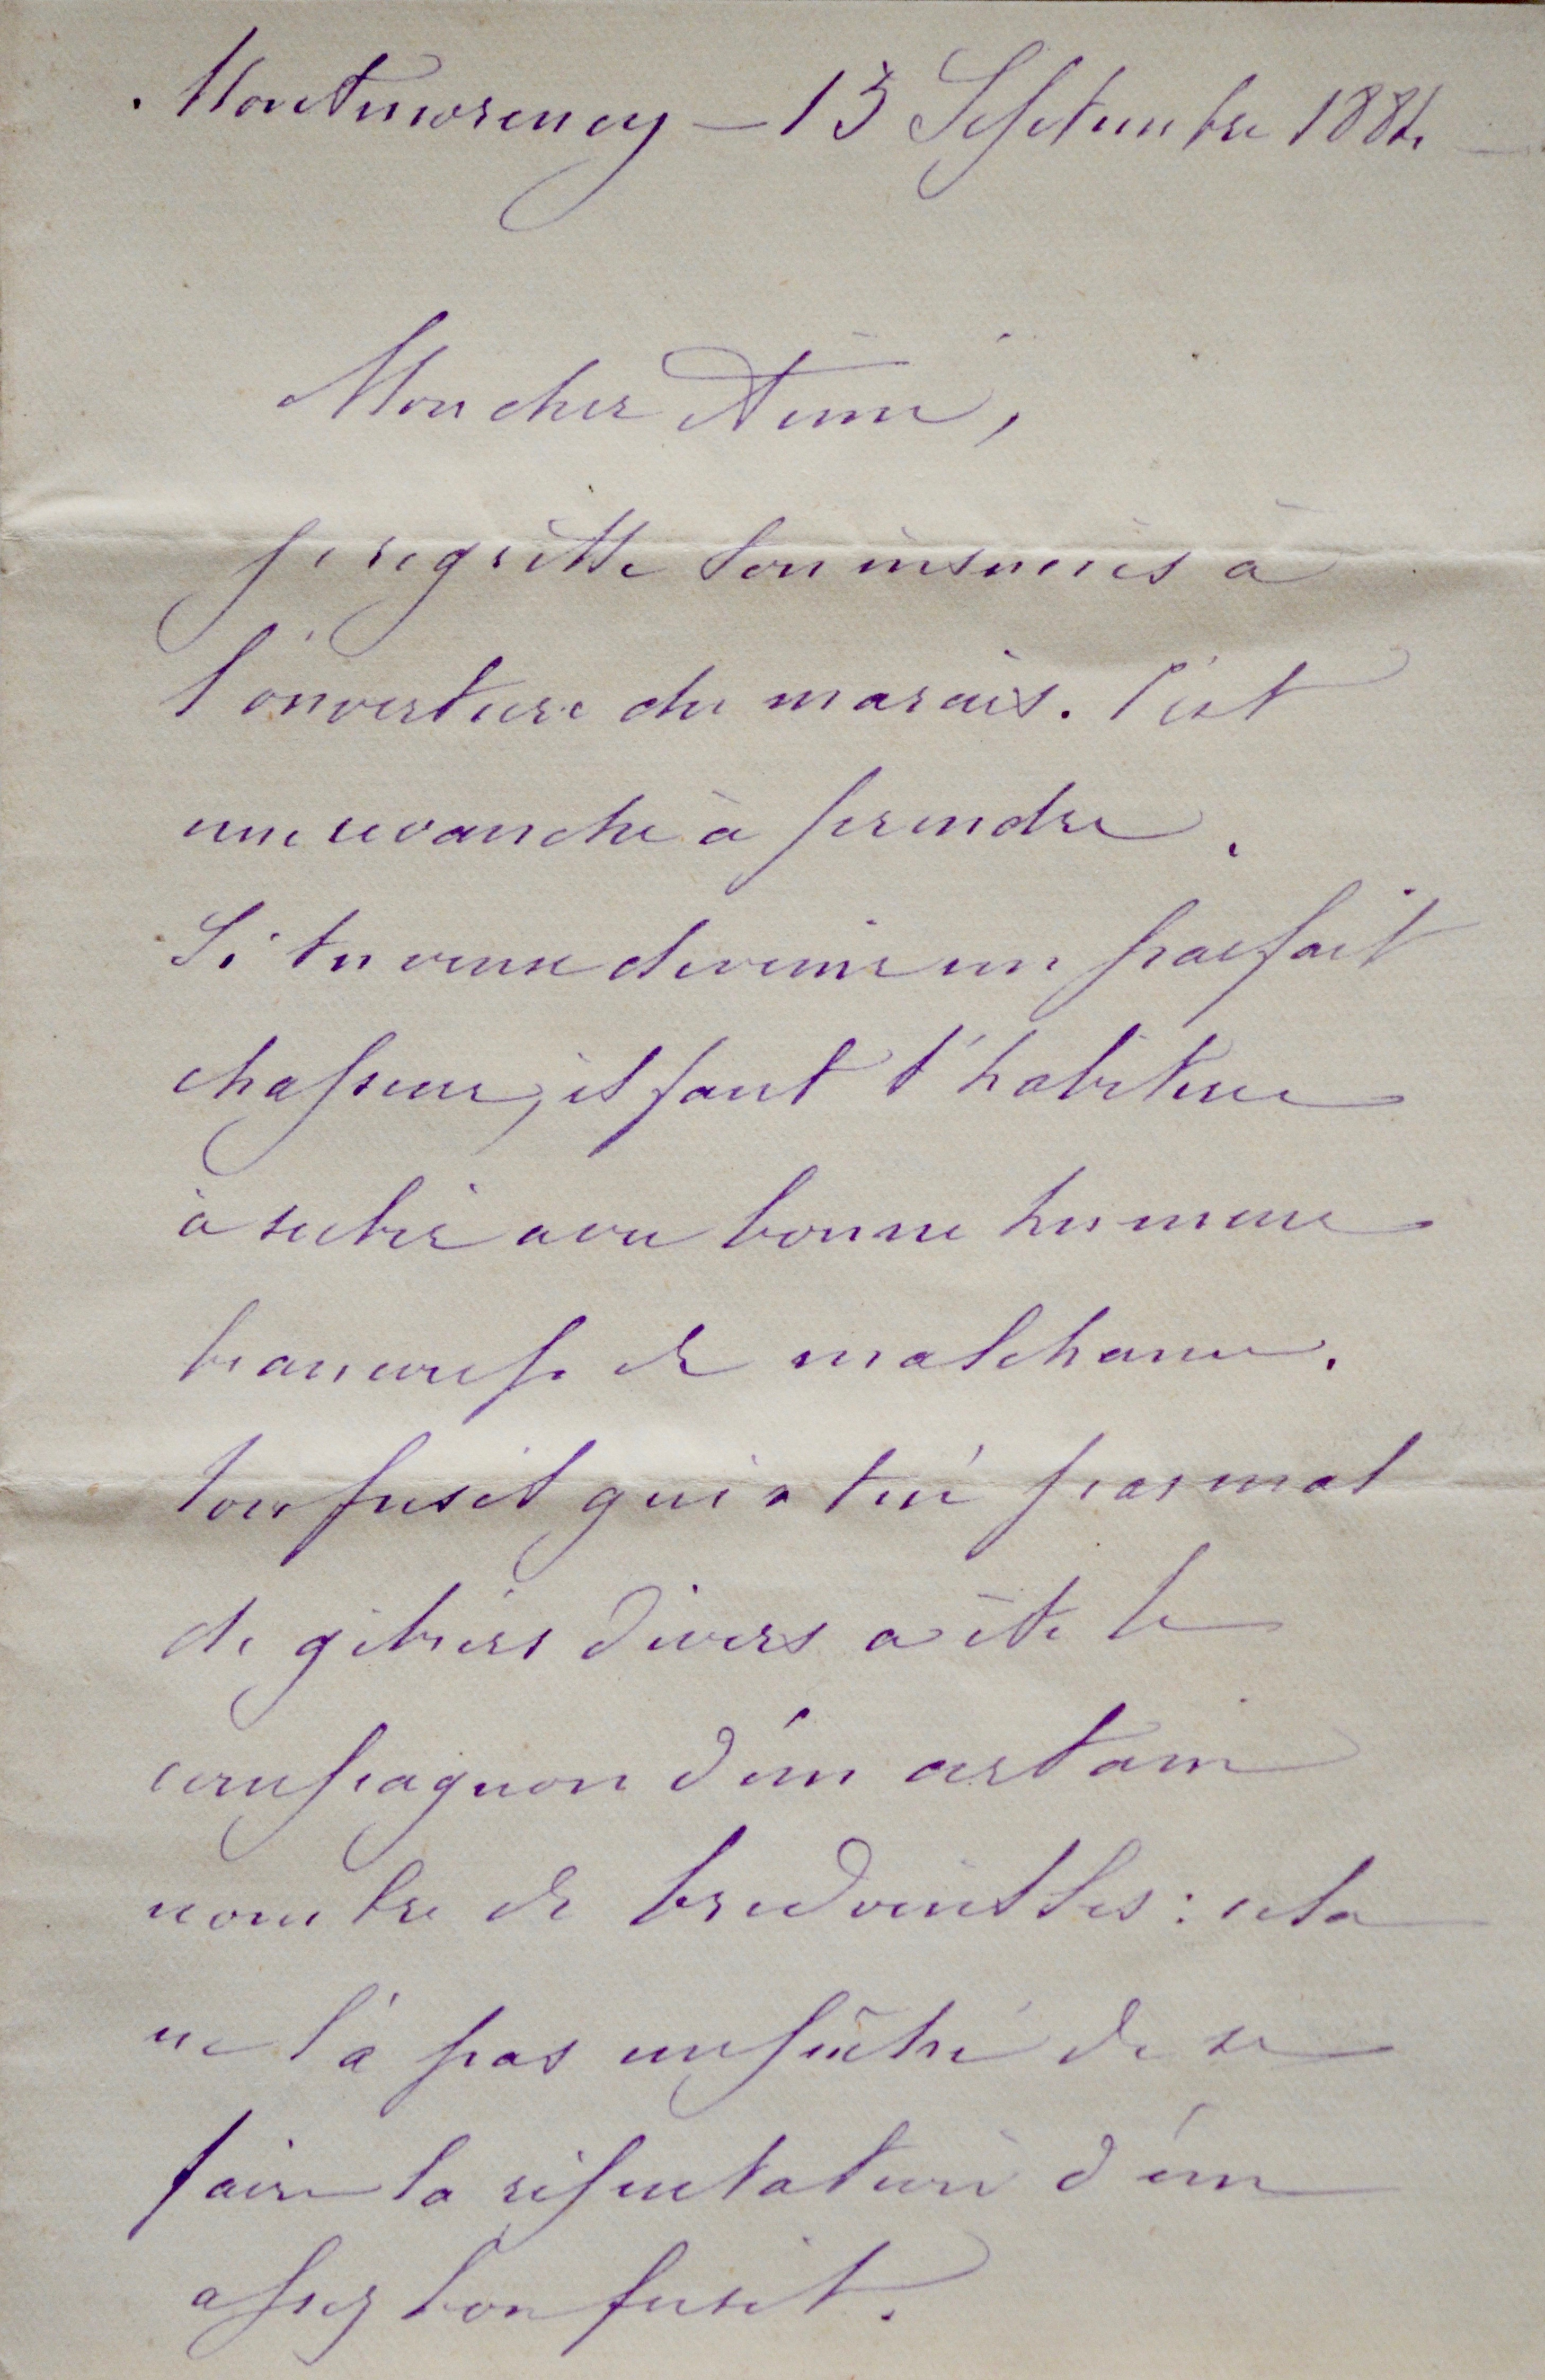 Montmorency – 13 Septembre 1884
Mon cher Aimé,
Je regrette ton insuccès à
l'ouverture du marais. C'est
une revanche à prendre.
Si tu veux devenir un parfait
chasseur, il faut t'habituer
à subir avec bonne humeur
beaucoup de malchance.
Ton fusil qui a tué pas mal
de gibiers divers a été le
compagnon d'un certain
nombre de bredouilles : cela
ne l'a pas empêché de se
faire la réputation d'un
assez bon fusil.